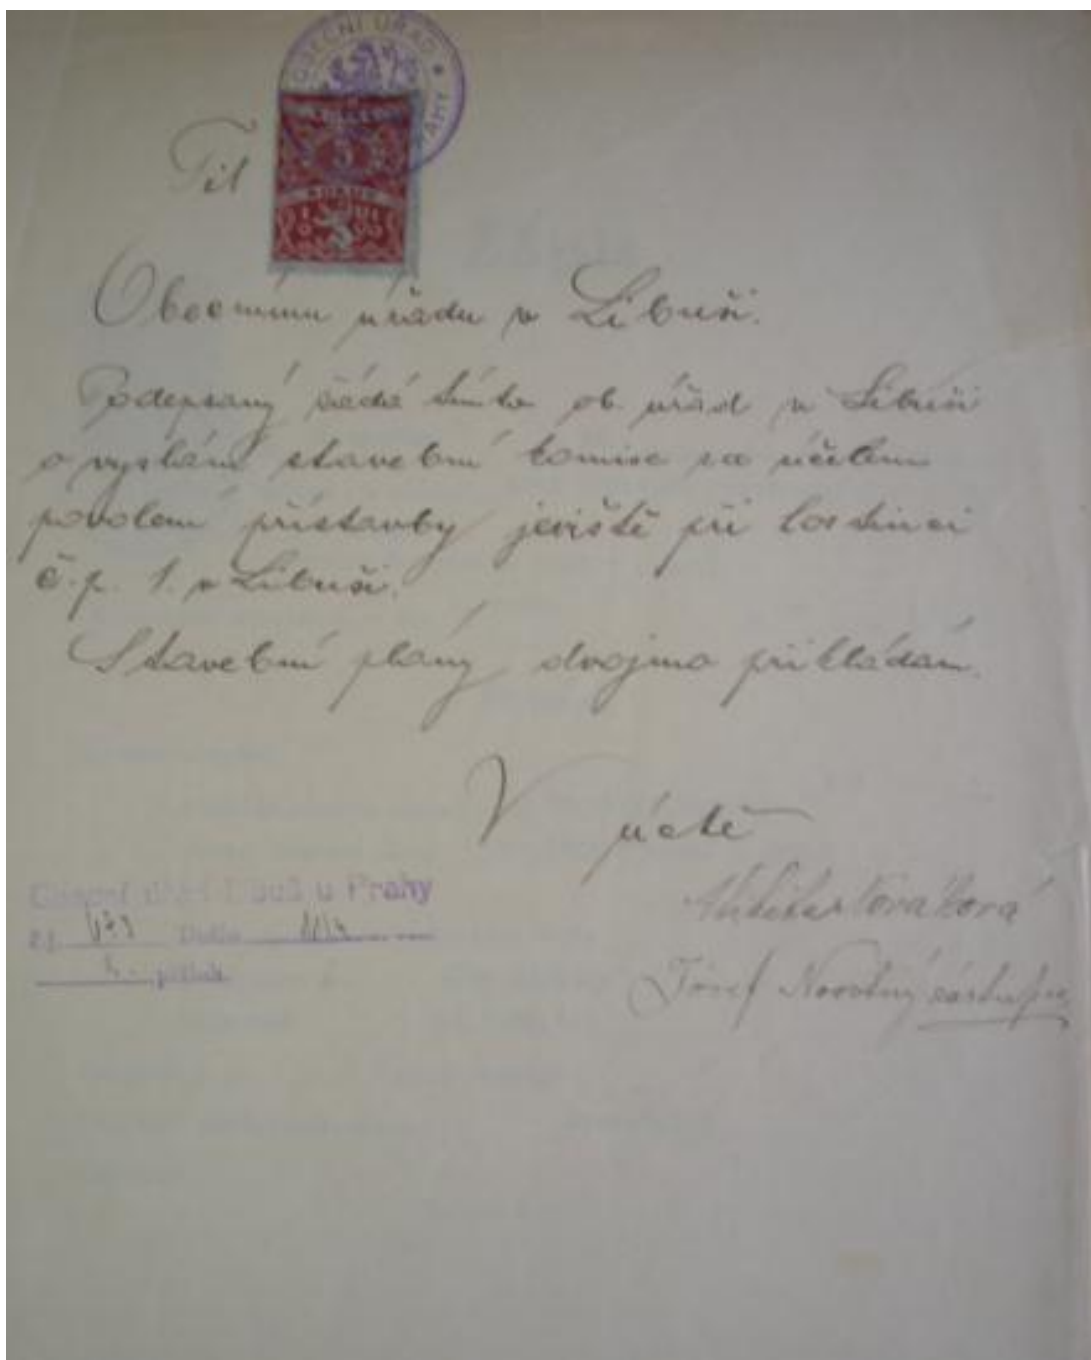 OBECNÍ ÚŘAD
PRAHY
Tit
5
Obecnímu úřadu v Libuši.
Podepsaný žádá tímto ob. úřad v Libuši
o vyslání stavební komise za účelem
povolení přístavby jeviště při hostinci
č. p. 1. v Libuši.
Stavební plány dvojmo přikládám.
V úctě
Obecní úřad Libuš u Prahy
č.j. Došlo
Nováková
Josef Novotný zástupce